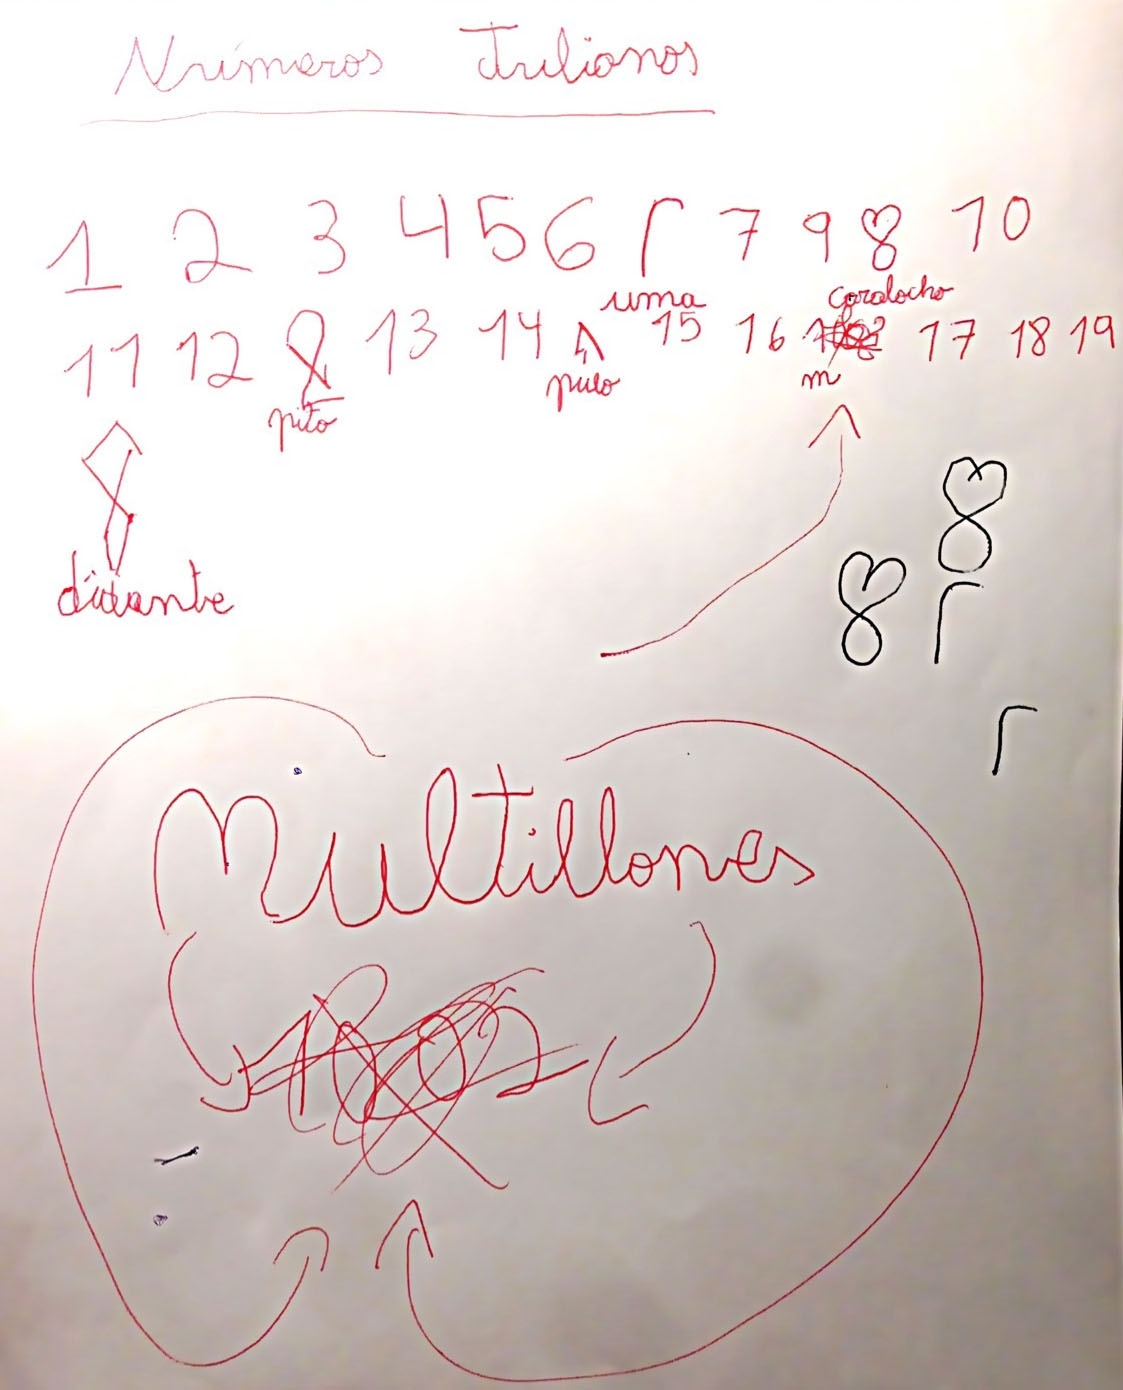 Números Julianos
1 2 3 4 5 6 7 9 8 10
uma coralocho
11 12 13 14 15 16 17 18 19
pito pulo m
Multillones